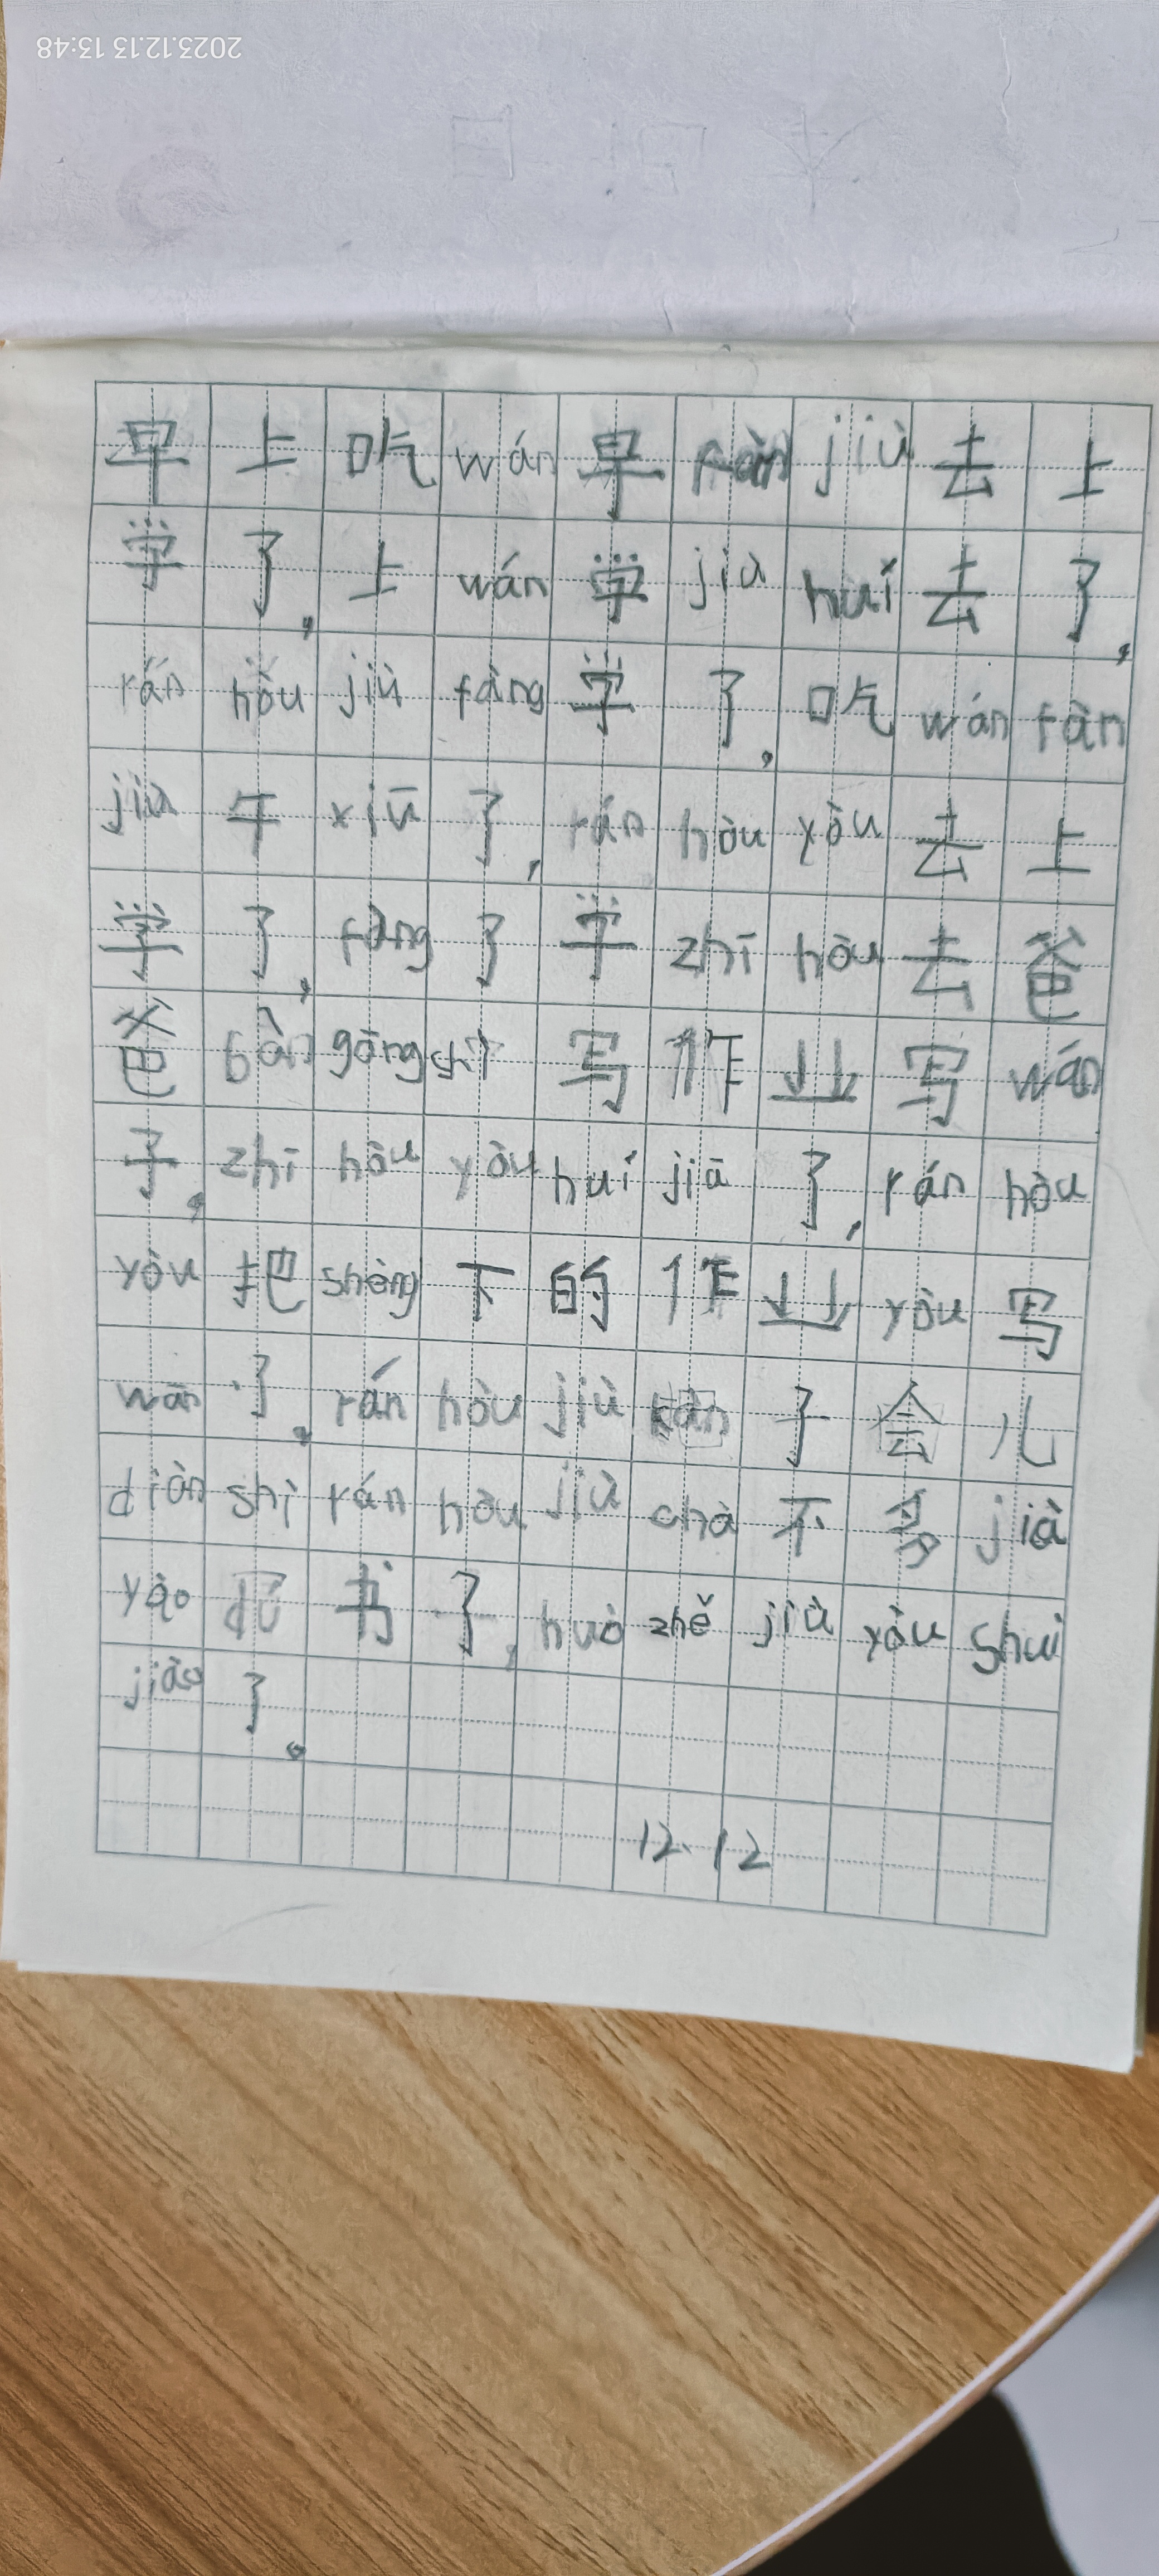 2023.12.13 13:48
早上吃wán早fàn jiù去上
学了，上wán学jiù huí去了，
rán hòu jiù fàng学了，吃wán fàn
jiù午xiū了，rán hòu yòu去上
学了，fàng了学zhī hòu去爸
爸bàn gōng shì写作业写wán
子，zhī hòu yòu huí jiā了，rán hòu
yòu把shèng下的作业yòu写
wán了。rán hòu jiù kàn子会儿
diàn shì rán hòu jiù chà不多jiù
yào 书了，huò zhě jiù yòu shuì
jiào了。
12.12